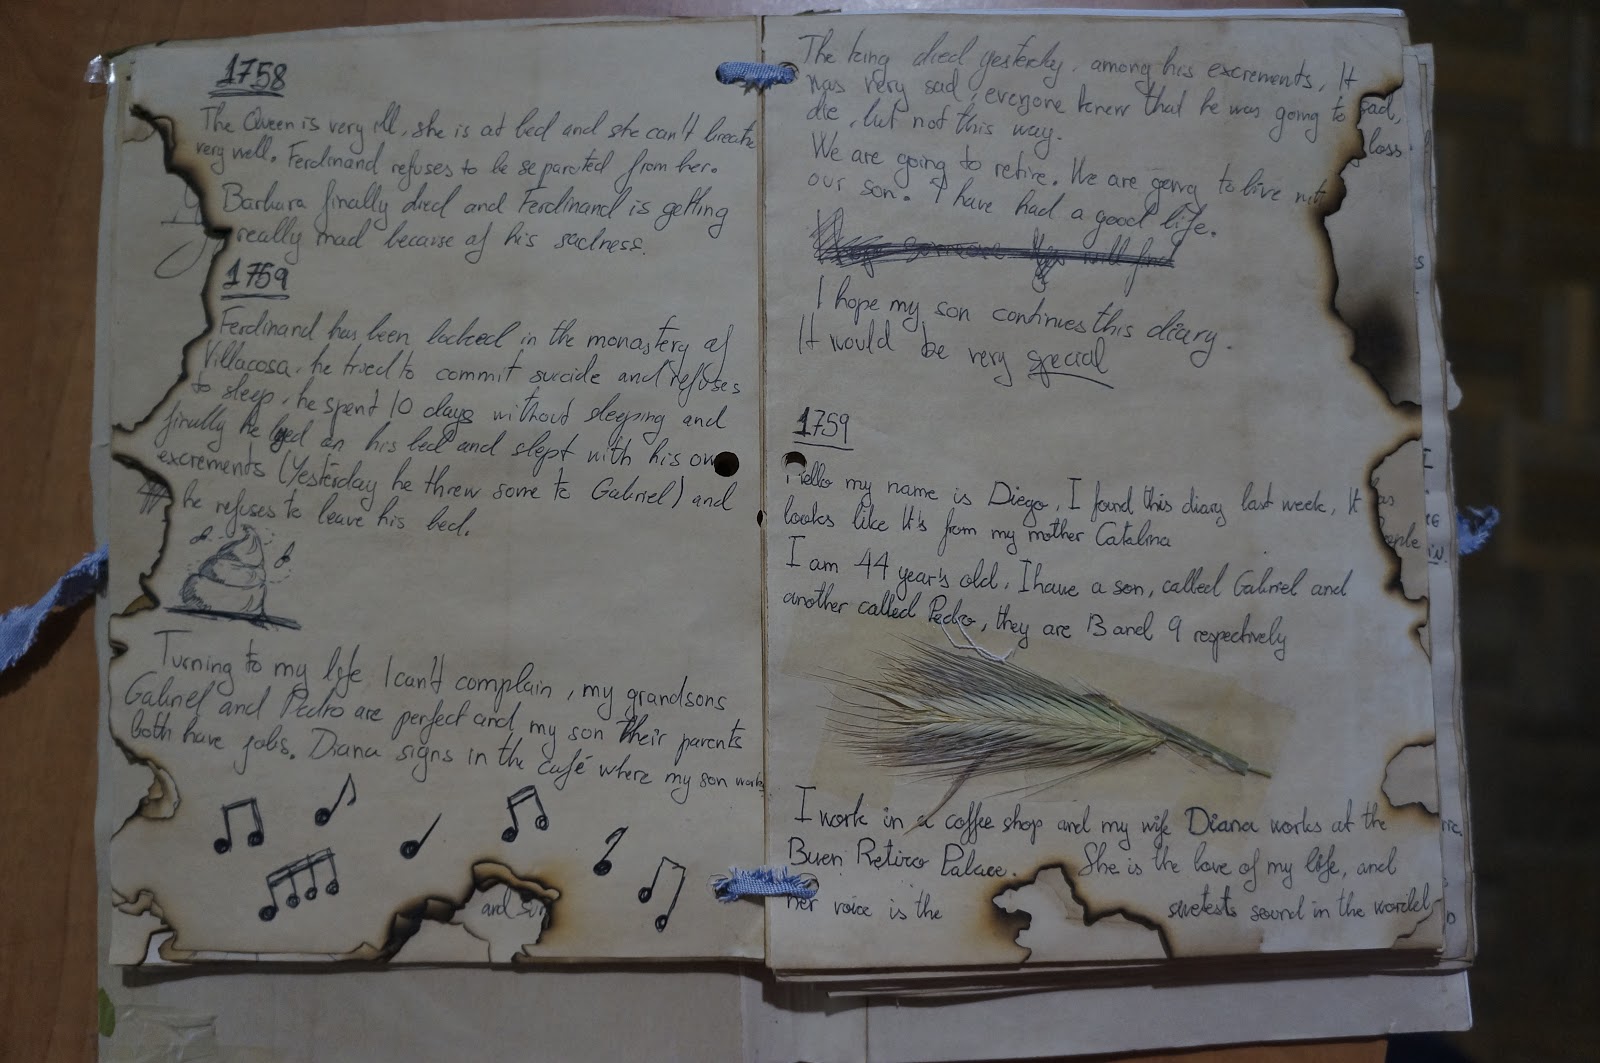 1758
The Queen is very ill, she is at bed and she can't breathe
very well. Ferdinand refuses to be separated from her.
Barbara finally died and Ferdinand is getting
really mad because of his sadness.
1759
Ferdinand has been locked in the monastery of
Villacosa, he tried to commit suicide and refuses
to sleep, he spent 10 days without sleeping and
finally he on his bed and slept with his own
excrements (Yesterday he threw some to Gabriel) and
he refuses to leave his bed.
Turning to my life I can't complain, my grandsons
Gabriel and Pedro are perfect and my son their parents
both have jobs. Diana signs in the café where my son works
and sun
The king died yesterday, among his excrements, It
was very sad, everyone knew that he was going to
die, but not this way.
We are going to retire. We are going to live wit
our son. I have had a good life.
someone will find
I hope my son continues this diary.
It would be very special
1759
Hello my name is Diego, I found this diary last week, It
looks like It's from my mother Catalina
I am 44 year's old, I have a son, called Gabriel and
another called Pedro, they are 13 and 9 respectively
I work in a coffee shop and my wife Diana works at the
Buen Retiro Palace. She is the love of my life, and
her voice is the swetests sound in the wordel
sad,
loss
as
ople